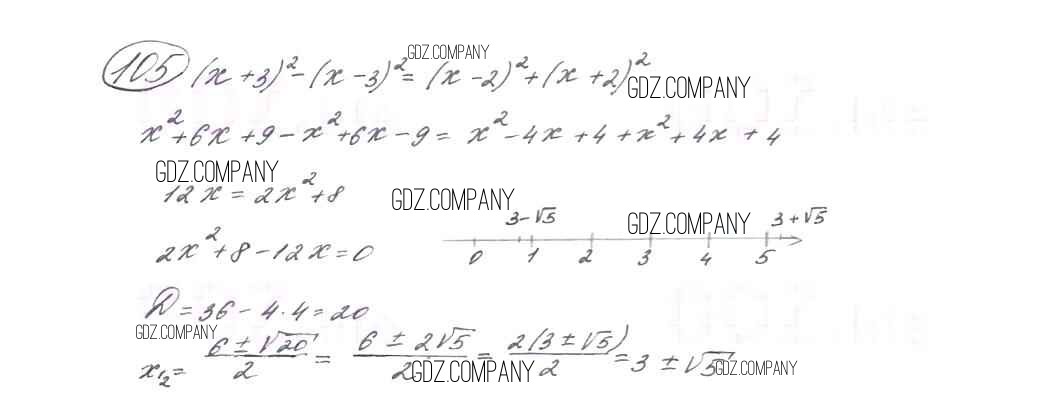 GDZ.COMPANY
105 (x+3)² - (x-3)² = (x-2)² + (x+2)²
GDZ.COMPANY
x² + 6x + 9 - x² + 6x - 9 = x² - 4x + 4 + x² + 4x + 4
GDZ.COMPANY
12x = 2x² + 8
GDZ.COMPANY
3-√5 GDZ.COMPANY 3+√5
2x² + 8 - 12x = 0
0 1 2 3 4 5
D = 36 - 4·4 = 20
GDZ.COMPANY
x₁,₂ = (6 ± √20)/2 = (6 ± 2√5)/2 = 2(3 ± √5)/2 = 3 ± √5
GDZ.COMPANY GDZ.COMPANY